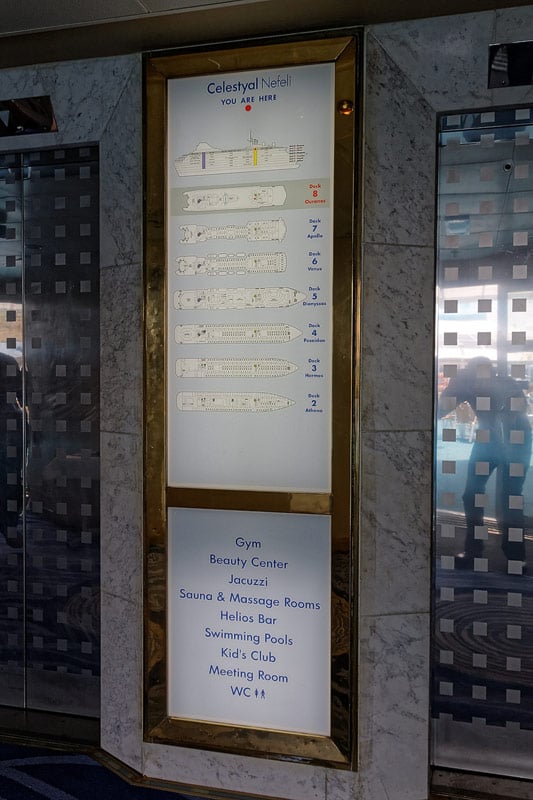 Celestyal Nefeli
YOU ARE HERE
Deck
8
Ouranos
Deck
7
Apollo
Deck
6
Venus
Deck
5
Dionyssos
Deck
4
Poseidon
Deck
3
Hermes
Deck
2
Athena
Gym
Beauty Center
Jacuzzi
Sauna & Massage Rooms
Helios Bar
Swimming Pools
Kid's Club
Meeting Room
WC